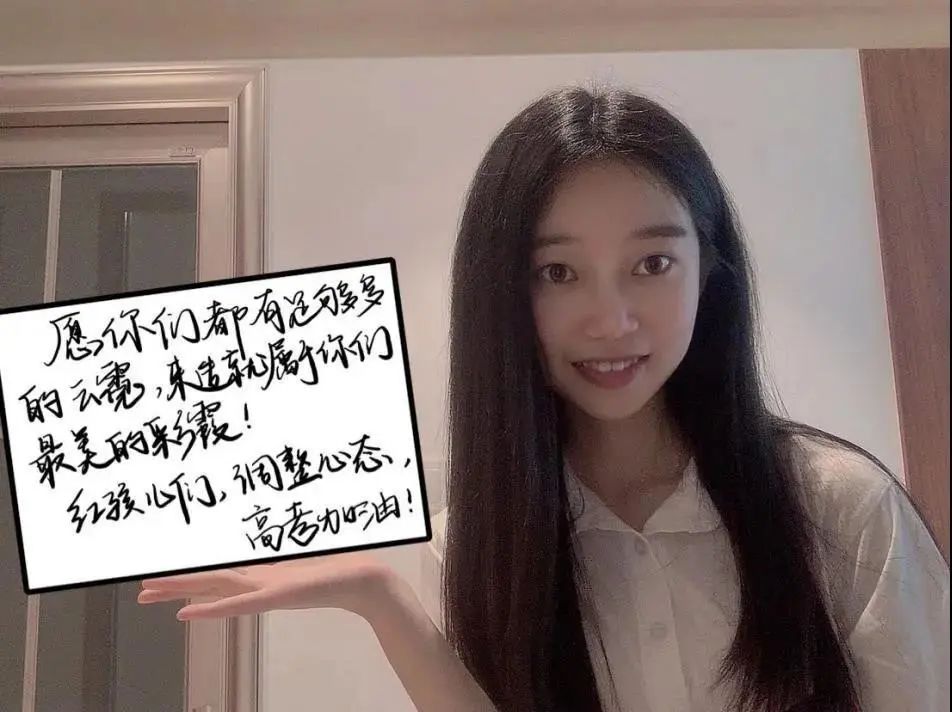 愿你们都有足够多
的云霓，来造就属于你们
最美的彩霞！
红孩儿们，调整心态，
高考加油！